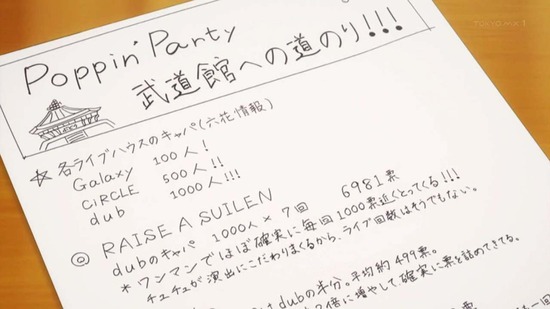 TOKYO MX 1
Poppin'Party
武道館への道のり!!!
☆ 各ライブハウスのキャパ(六花情報)
Galaxy 100人!
CiRCLE 500人!!
dub 1000人!!!
◎ RAISE A SUILEN 6981票
dubのキャパ 1000人×7回
*ワンマンでほぼ確実に毎回1000票近くとってくる!!!
チュチュが演出にこだわりまくるから、ライブ回数はそうでもない。
dubの半分。平均約499票。
倍に増やして確実に票を詰めてきてる。